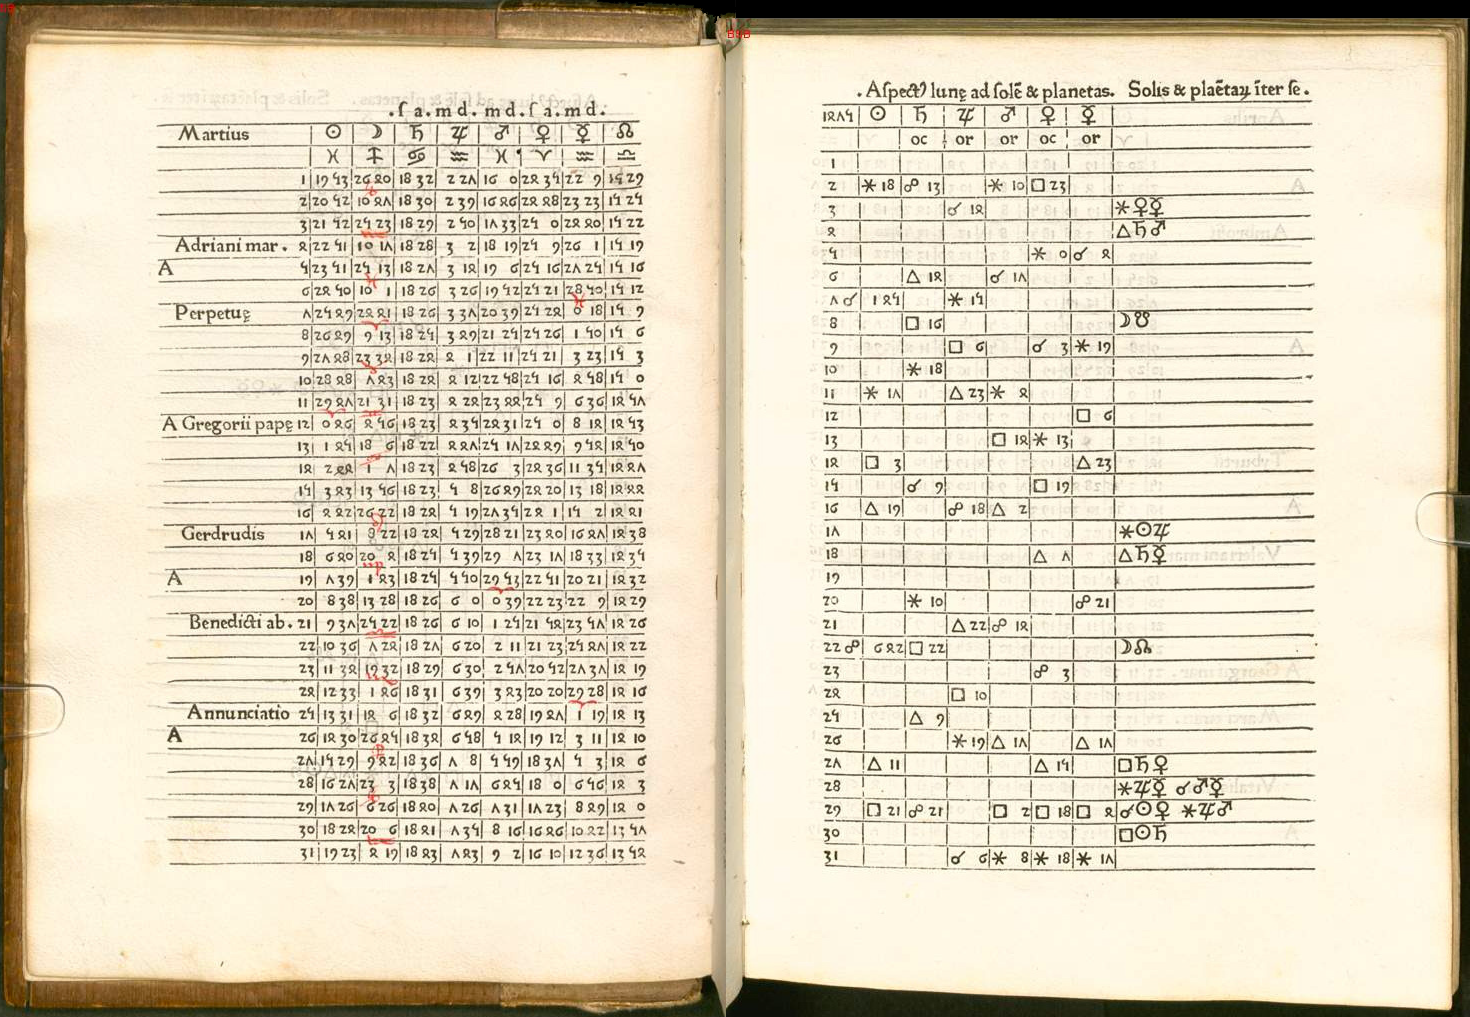 . ſ a . m d . m d . ſ a . m d .
Martius ☉ ☽ ♄ ♃ ♂ ♀ ☿ ☊
♓ ♐ ♋ ♒ ♓ ♈ ♒ ♎
1 19 53 26 20 18 32 2 27 16 0 24 35 22 9 15 29
2 20 52 10 47 18 30 2 39 16 46 24 48 23 23 15 25
3 21 52 25 23 18 29 2 50 17 33 25 0 24 40 15 22
Adriani mar . 4 22 51 10 17 18 28 3 2 18 19 25 9 26 1 15 19
A 5 23 51 25 13 18 27 3 14 19 6 25 16 27 25 15 16
6 24 50 10 1 18 26 3 26 19 52 25 21 28 50 15 12
Perpetuę 7 25 49 24 41 18 26 3 37 20 39 25 24 0 18 15 9
8 26 49 9 13 18 25 3 49 21 25 25 26 1 50 15 6
9 27 48 23 34 18 24 4 1 22 11 25 21 3 23 15 3
10 28 48 7 43 18 24 4 12 22 58 25 16 4 58 15 0
11 29 47 21 31 18 23 4 24 23 44 25 9 6 36 14 57
A Gregorii papę 12 0 46 4 56 18 23 4 35 24 31 25 0 8 14 14 53
13 1 45 18 6 18 22 4 47 25 17 24 49 9 54 14 50
14 2 44 1 7 18 23 4 58 26 3 24 36 11 35 14 47
15 3 43 13 56 18 23 5 8 26 49 24 20 13 18 14 44
16 4 42 26 22 18 24 5 19 27 35 24 1 15 2 14 41
Gerdrudis 17 5 41 8 22 18 24 5 29 28 21 23 40 16 47 14 38
18 6 40 20 4 18 25 5 39 29 7 23 17 18 33 14 35
A 19 7 39 1 43 18 25 5 50 29 53 22 51 20 21 14 32
20 8 38 13 28 18 26 6 0 0 39 22 23 22 9 14 29
Benedicti ab . 21 9 37 25 22 18 26 6 10 1 25 21 54 23 57 14 26
22 10 36 7 24 18 27 6 20 2 11 21 23 25 47 14 22
23 11 34 19 32 18 29 6 30 2 57 20 52 27 37 14 19
24 12 33 1 46 18 31 6 39 3 43 20 20 29 28 14 16
Annunciatio 25 13 31 14 6 18 32 6 49 4 28 19 47 1 19 14 13
A 26 14 30 26 45 18 34 6 58 5 14 19 12 3 11 14 10
27 15 29 9 42 18 36 7 8 5 59 18 37 5 3 14 6
28 16 27 23 3 18 38 7 17 6 45 18 0 6 56 14 3
29 17 26 6 26 18 40 7 26 7 31 17 23 8 49 14 0
30 18 24 20 6 18 41 7 35 8 16 16 46 10 42 13 57
31 19 23 4 19 18 43 7 43 9 2 16 10 12 36 13 54
. Aſpectꝰ lunę ad ſolē & planetas . Solis & plaētaꝝ īter ſe .
1475 ☉ ♄ ♃ ♂ ♀ ☿
oc or or oc or
1
2 ⚹ 18 ☍ 13 ⚹ 10 □ 23
3 ☌ 14 ⚹♀☿
4 △♄♂
5 ⚹ 0 ☌ 4
6 △ 14 ☌ 17
7 ☌ 1 45 ⚹ 15
8 □ 16 ☽☋
9 □ 6 ☌ 3 ⚹ 19
10 ⚹ 18
11 ⚹ 17 △ 23 ⚹ 4
12 □ 6
13 □ 14 ⚹ 13
14 □ 3 △ 23
15 ☌ 9 □ 19
16 △ 19 ☍ 18 △ 2
17 ⚹☉♃
18 △ 7 △♄☿
19
20 ⚹ 10 ☍ 21
21 △ 22 ☍ 14
22 ☍ 6 42 □ 22 ☽☊
23 ☍ 3
24 □ 10
25 △ 9
26 ⚹ 19 △ 17 △ 17
27 △ 11 △ 15 □♄♀
28 ⚹♃☿ ☌♂☿
29 □ 21 ☍ 21 □ 2 □ 18 □ 4 ☌☉♀ ⚹♃♂
30 □☉♄
31 ☌ 6 ⚹ 8 ⚹ 18 ⚹ 17